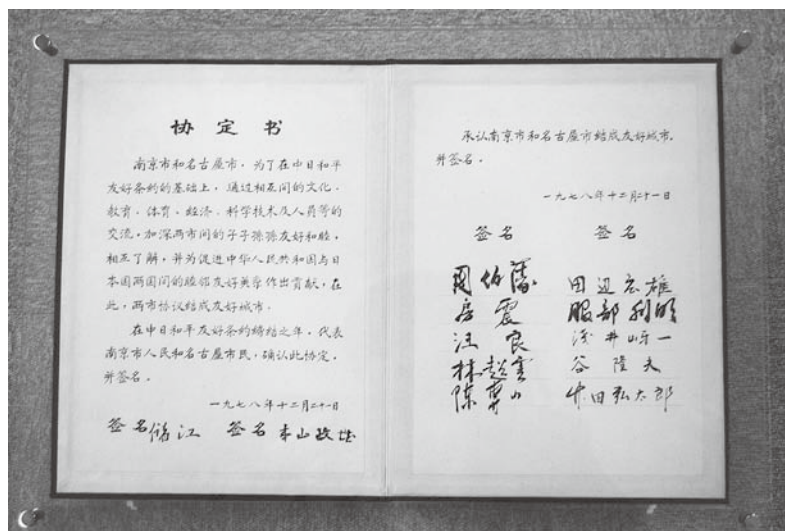 协定书
南京市和名古屋市，为了在中日和平
友好条约的基础上，通过相互间的文化、
教育、体育、经济、科学技术及人员等的
交流，加深两市间的子子孙孙友好和睦，
相互了解，并为促进中华人民共和国与日
本国两国间的睦邻友好关系作出贡献，在
此，两市协议结成友好城市。
在中日和平友好条约缔结之年，代表
南京市人民和名古屋市民，确认此协定，
并签名。
一九七八年十二月二十一日
签名 储江 签名 本山政雄
承认南京市和名古屋市结成友好城市，
并签名。
一九七八年十二月二十一日
签名 签名
周伯藩 田辺宏雄
房震 服部利明
汪良 浅井岬一
林超 谷隆夫
陈 田弘太郎